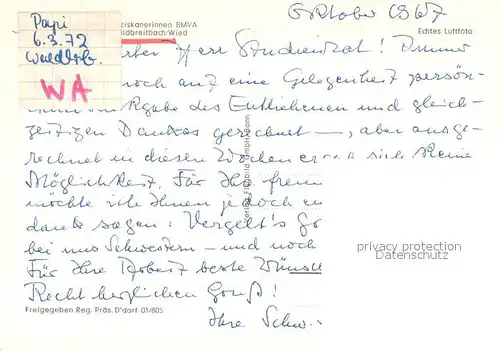 Papi
6.3.72
Waldbr.
WA
ziskanerinnen BMVA
ldbreitbach/Wied
Oktober 1967
Echtes Luftfoto
rter Herr Studienrat! Immer
noch auf eine Gelegenheit persön-
gabe des Entliehenen und gleich-
zeitigen Dankes gerechnet –, aber ausge-
rechnet in diesen Wochen sich keine
Möglichkeit. Für Ihre freun
möchte ich Ihnen jedoch
danke sagen: Vergelt's Go
bei uns Schwestern – und noch
Für Ihre Arbeit beste Wünsc
Recht herzlichen Gruß!
Ihre Schw.
Freigegeben Reg. Präs. D'dorf 01/805
privacy protection
picture AK-ID